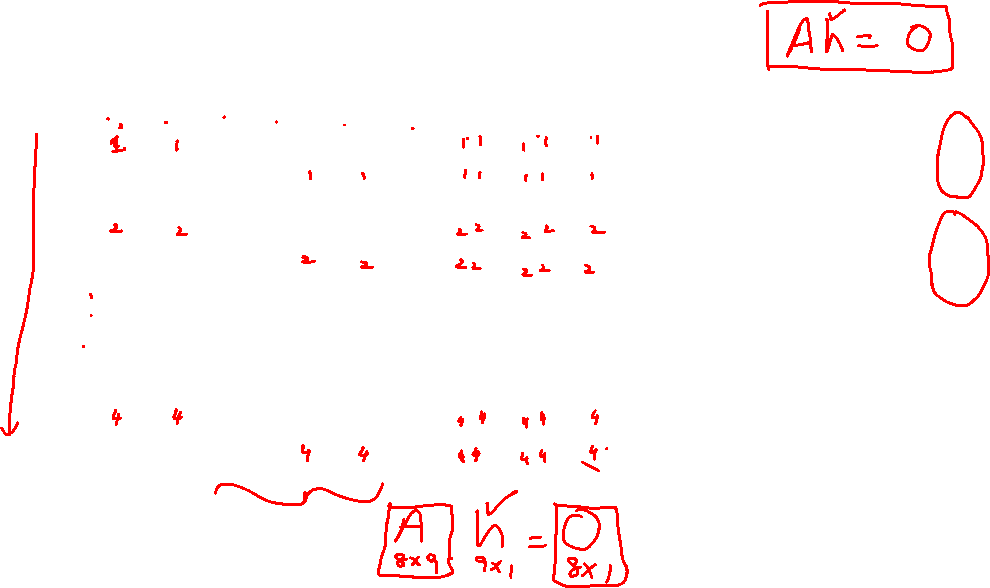 Ah = 0
1 1 1 1 1 1 1
1 1 1 1 1 1 1
2 2 2 2 2 2 2
2 2 2 2 2 2 2
4 4 4 4 4 4 4
4 4 4 4 4 4 4
A h = 0
8x9 9x1 8x1